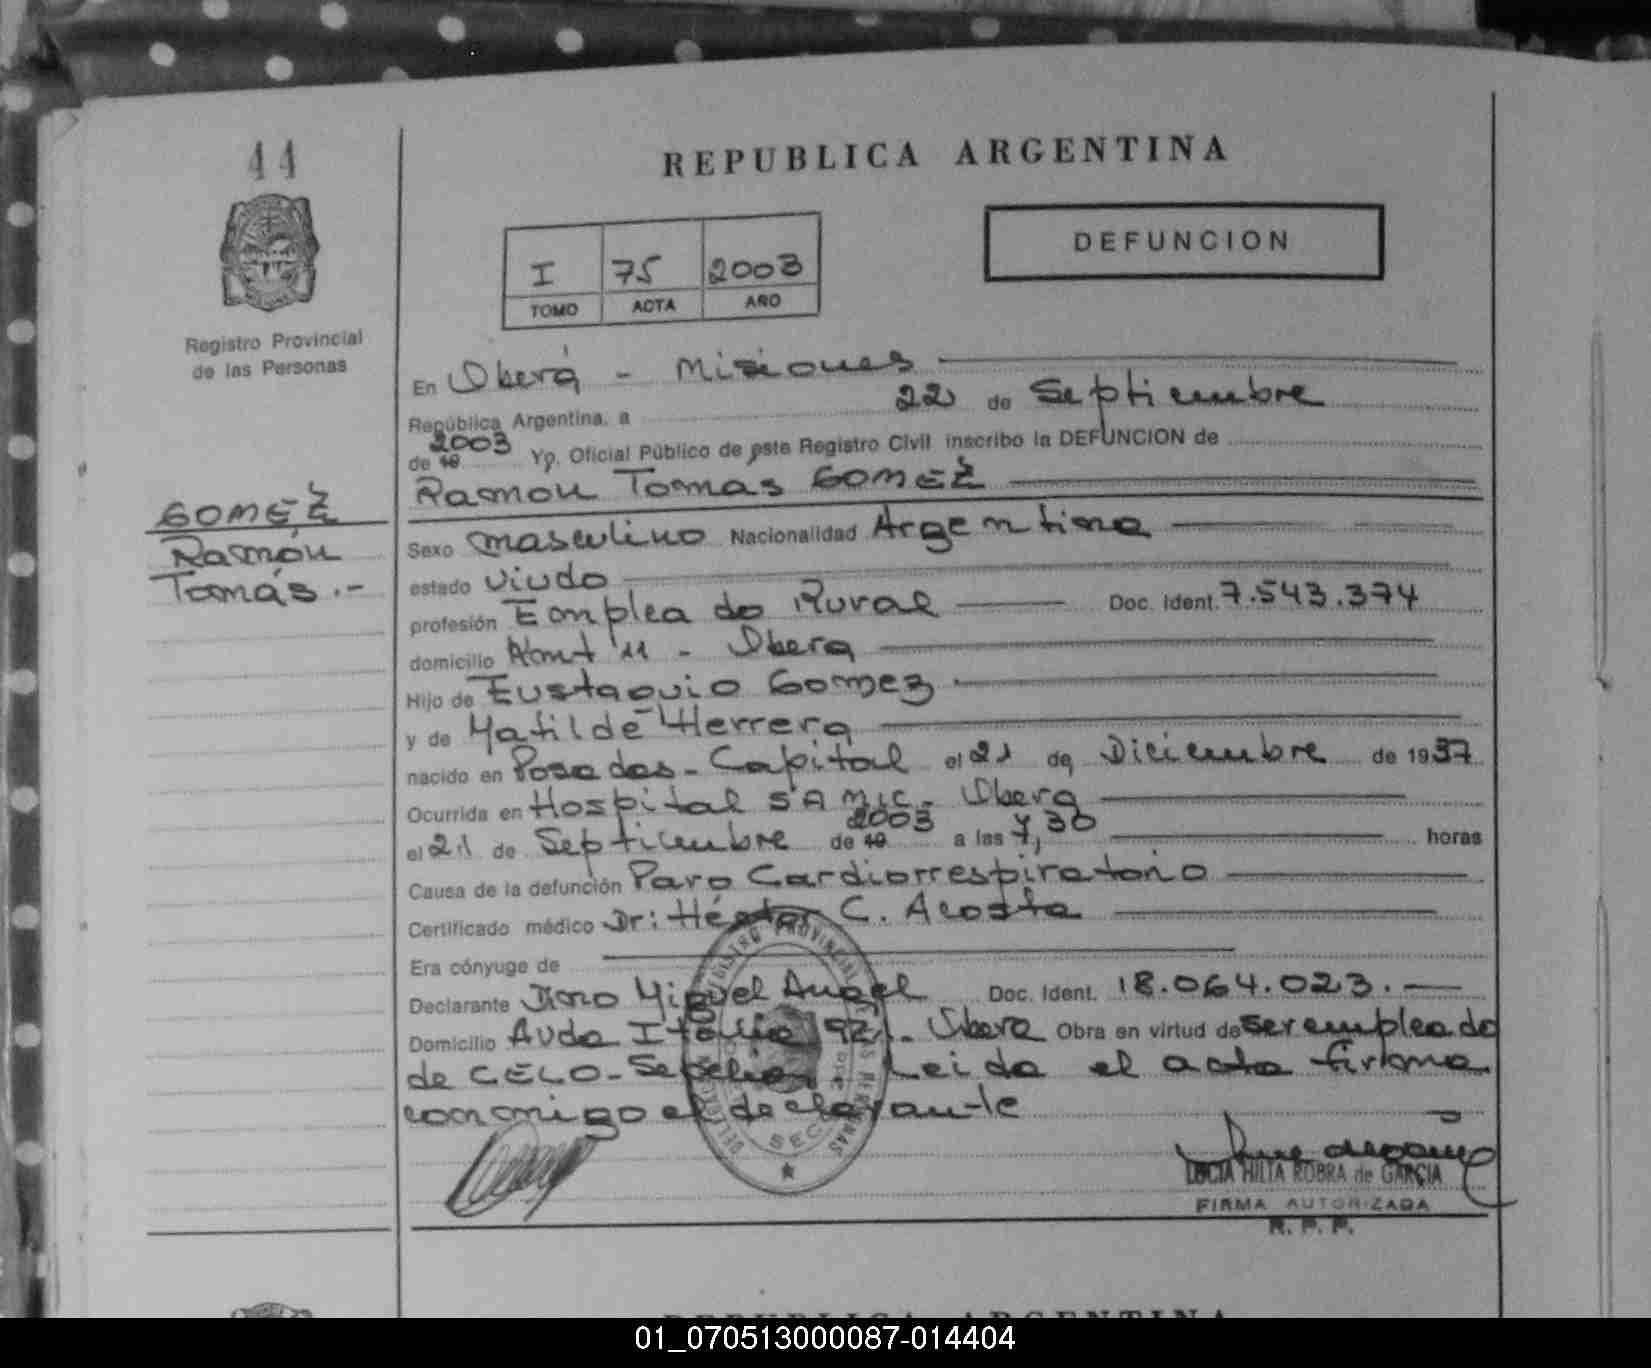 44
REPUBLICA ARGENTINA
DEFUNCION
I 75 2003
TOMO ACTA AÑO
Registro Provincial
de las Personas
En Oberá - Misiones
República Argentina, a 22 de Septiembre
de 19 2003 Yo, Oficial Público de este Registro Civil inscribo la DEFUNCION de
Ramon Tomas GOMEZ
GOMEZ
Ramón
Tomás.-
Sexo masculino Nacionalidad Argentina
estado viudo
profesión Empleado Rural Doc. Ident. 7.543.374
domicilio 11 - Obera
Hijo de Eustaquio Gomez
y de Matilde Herrera
nacido en Posadas - Capital el 21 de Diciembre de 1937
Ocurrida en Hospital SAMIC - Obera
el 21 de Septiembre de 19 2003 a las 7,30 horas
Causa de la defunción Paro Cardiorrespiratorio
Certificado médico Dr: Héctor C. Acosta
Era cónyuge de
Declarante Miguel Angel Doc. Ident. 18.064.023.-
Domicilio Avda Italia Obera Obra en virtud de ser empleado
de CELO - Sepelios Leida el acta firma
conmigo el declarante
REGISTRO PROVINCIAL DE LAS PERSONAS
LUCIA HILTA ROBRA de GARCIA
FIRMA AUTORIZADA
R. P. P.
REPUBLICA ARGENTINA
01_070513000087-014404